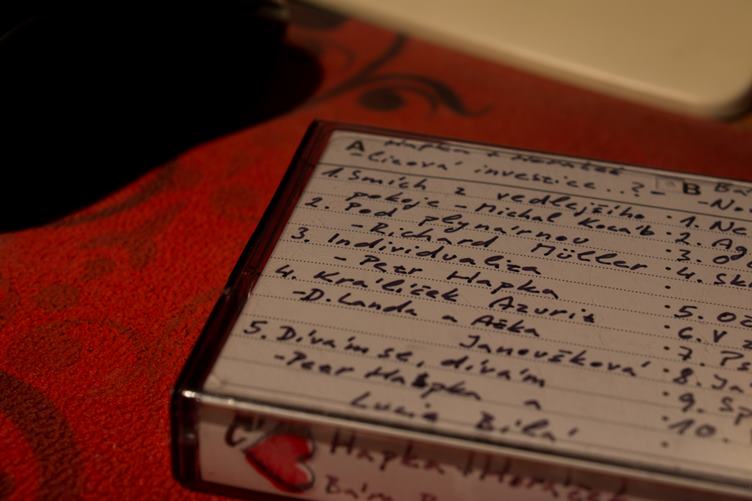 A Hapka a Horáček
-Citová investice..?-
1. Smích z vedlejšího
pokoje - Michal Kocáb
2. Pod plynárnou
- Richard Müller
3. Individualiza
- Petr Hapka
4. Králíček Azurit
-D. Landa a Ažka
Janoušková
5. Dívám se, dívám
-Petr Hapka a
Lucie Bílá
B Bá
-No
1. Ne
2. Ag
3. Od
4. Sk
5. Oč
6. V z
7. Ps
8. Ja
9. Sp
10.
Hapka/Horáček
Bára B